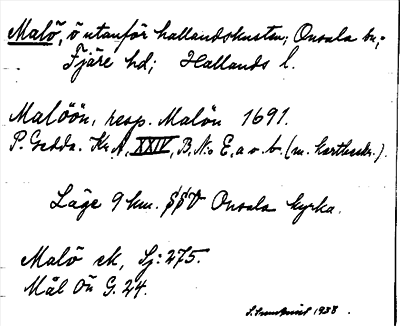 Malö, ö utanför hallandskusten; Onsala sn;
Fjäre hd; Hallands l.
Malöön, resp. Malön 1691.
P. Gedda. Kr. A. XXIV, B. N:o E, a o. b. (m. kartbeskr.).
Läge 9 km. SSV Onsala kyrka.
Malö ek, Sj: 275.
Mål Ön G. 24.
1938